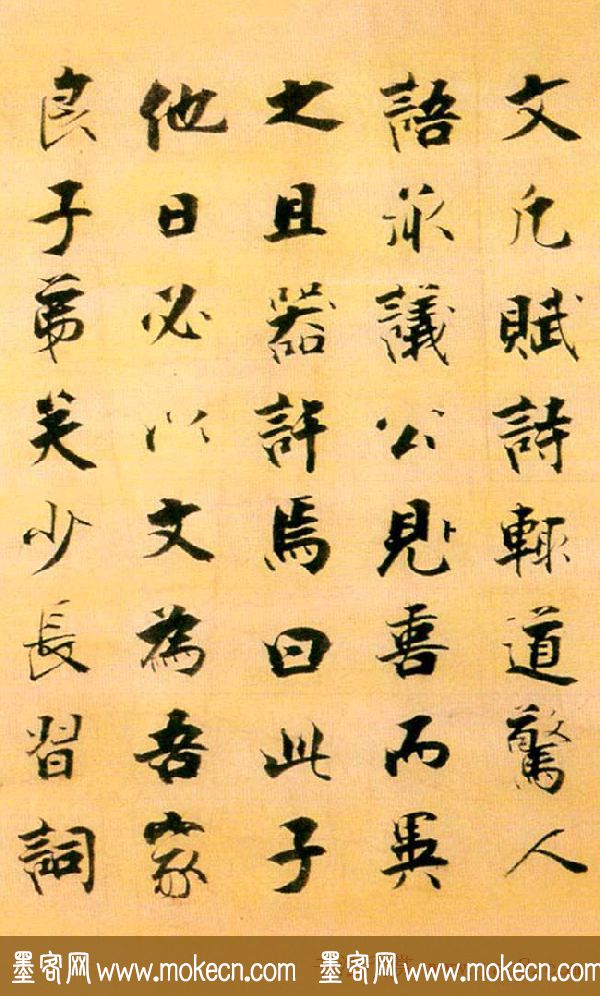 文凡賦詩輒道驚人
語承議公見喜而異
之且器許焉曰此子
他日必以文為吾家
良子弟矣少長習詞
墨客网 www.mokecn.com 墨客网 www.mokecn.com